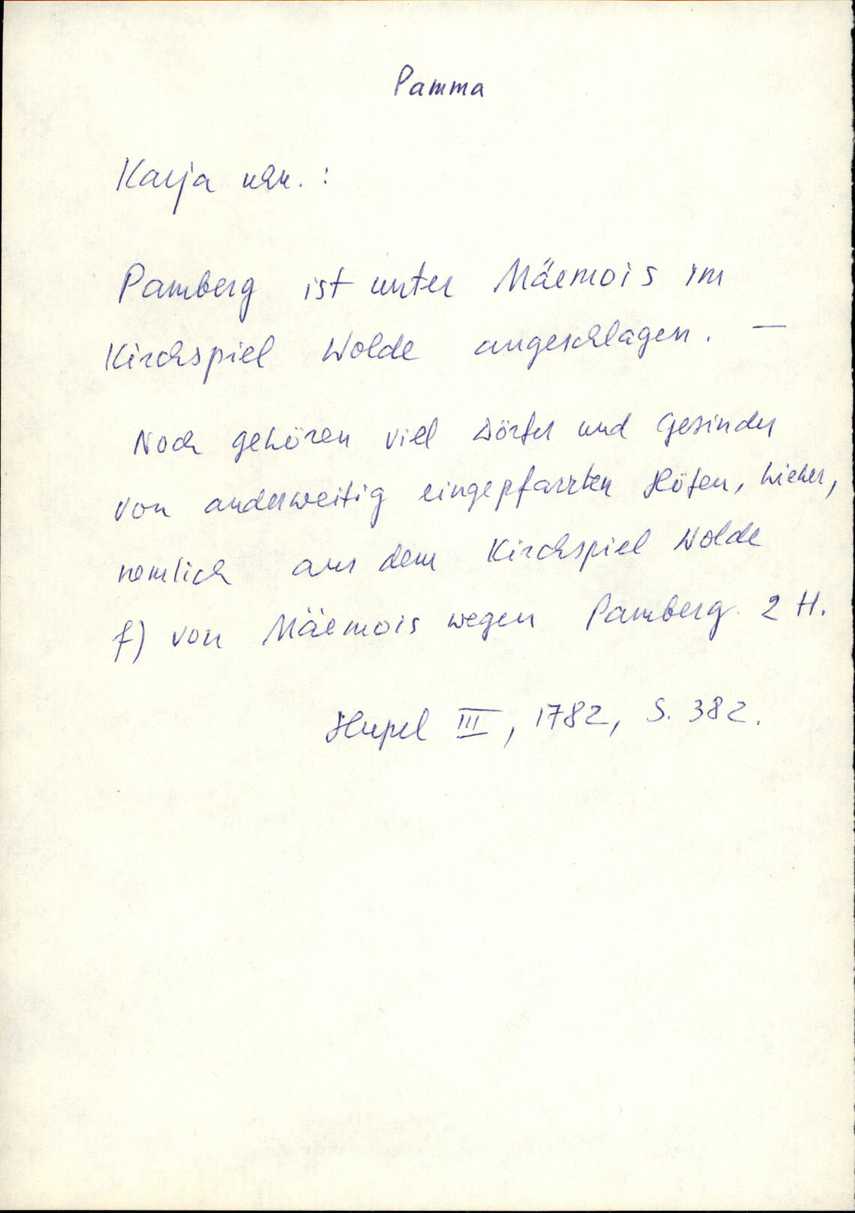 Pamma
Karja khk. :
Pamberg ist unter Mäemois im
Kirchspiel Wolde angeschlagen. —
Noch gehören viel Dörfer und Gesinder
von anderweitig eingepfarrten Höfen, hieher,
nemlich aus dem Kirchspiel Wolde
f) von Mäemois wegen Pamberg 2 H.
Hupel III, 1782, S. 382.